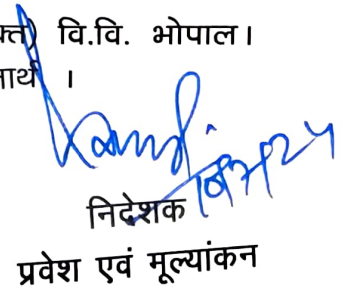 क्त) वि.वि. भोपाल।
नार्थ ।
निदेशक
प्रवेश एवं मूल्यांकन